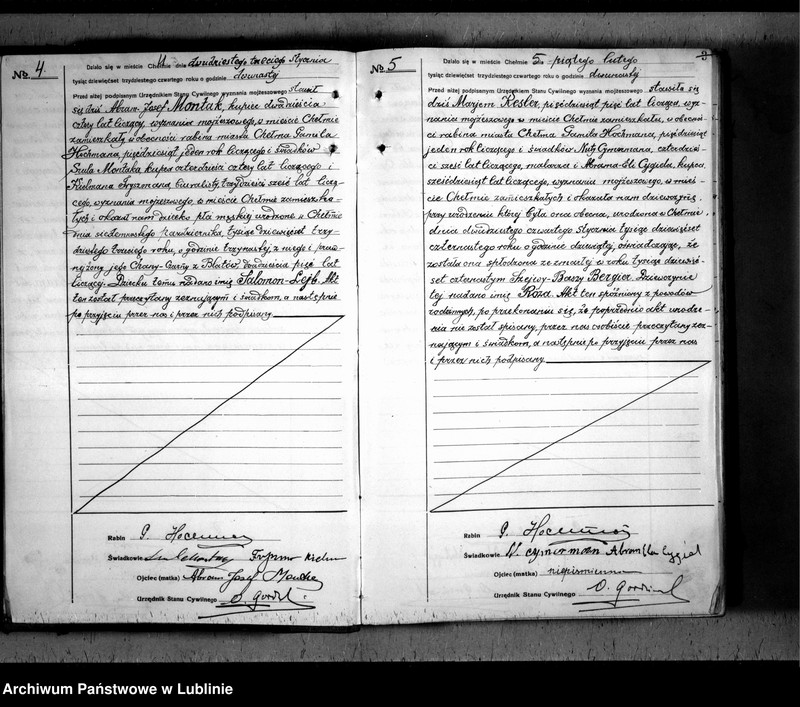 No. 4.
Działo się w mieście Chełmie dnia dwudziestego trzeciego Stycznia
tysiąc dziewięćset trzydziestego czwartego roku o godzinie dwunastej
Przed niżej podpisanym Urzędnikiem Stanu Cywilnego wyznania mojżeszowego stawił
się dziś Abram-Josef Montak, kupiec dwadzieścia
cztery lat liczący, wyznania mojżeszowego, w mieście Chełmie
zamieszkały w obecności rabina miasta Chełma Gamsla
Hochmana, pięćdziesiąt jeden rok liczącego i świadków
Srula Montaka kupca czterdzieści cztery lat liczącego i
Kielmana Fryszmana, biuralisty, trzydzieści sześć lat liczą-
cego, wyznania mojżeszowego, w mieście Chełmie zamieszka-
łych i okazał nam dziecko płci męskiej urodzone w Chełmie
dnia siedemnastego Października, tysiąc dziewięćset trzy-
dziestego trzeciego roku, o godzinie trzynastej, z niego i prawo-
żony jego Chany-Cariny z Blatów, dwadzieścia pięć lat
liczącej. Dziecku temu nadano imię Salomon-Lejb. Akt
ten został przeczytany zeznającym i świadkom, a następnie
po przyjęciu przez nas i przez nich podpisany.
Rabin G. Hochman
Świadkowie Fryszman Kielman
Ojciec (matka) Abram Josef Montak
Urzędnik Stanu Cywilnego
3
No. 5
Działo się w mieście Chełmie dnia piątego lutego
tysiąc dziewięćset trzydziestego czwartego roku o godzinie dwunastej
Przed niżej podpisanym Urzędnikiem Stanu Cywilnego wyznania mojżeszowego stawiła się
dziś Marjem Kesler, pięćdziesiąt pięć lat licząca, wyz-
nania mojżeszowego w mieście Chełmie zamieszkała, w obecnoś-
ci rabina miasta Chełma Gamsla Hochmana, pięćdziesiąt
jeden rok liczącego i świadków Nuty Cymermana, czterdzieś-
ci sześć lat liczącego, malarza i Abrama-Eli Cygiela, kupca,
sześćdziesiąt lat liczącego, wyznania mojżeszowego, w mieś-
cie Chełmie zamieszkałych i okazała nam dziewczynę,
przy urodzeniu której była ona obecna, urodzoną w Chełmie,
dnia dwudziestego czwartego Stycznia tysiąc dziewięćset
czternastego roku o godzinie dziesiątej, oświadczając, że
została ona spłodzona ze zmarłej w roku tysiąc dziewięć-
set czternastym Szejwy-Baszy Bergier. Dziewczynie
tej nadano imię Róża. Akt ten spóźniony z powodów
rodzinnych, po przekonaniu się, że poprzednio akt urodze-
nia nie został spisany, przez nas osobiście przeczytany zez-
nającym i świadkom, a następnie po przyjęciu przez nas
i przez nich podpisany.
Rabin G. Hochman
Świadkowie N. Cymerman Abram Ela Cygiel
Ojciec (matka) niepiśmienna
Urzędnik Stanu Cywilnego
Archiwum Państwowe w Lublinie